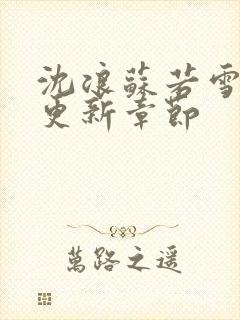 沈浪蘇若雪
更新章節
萬路之遥